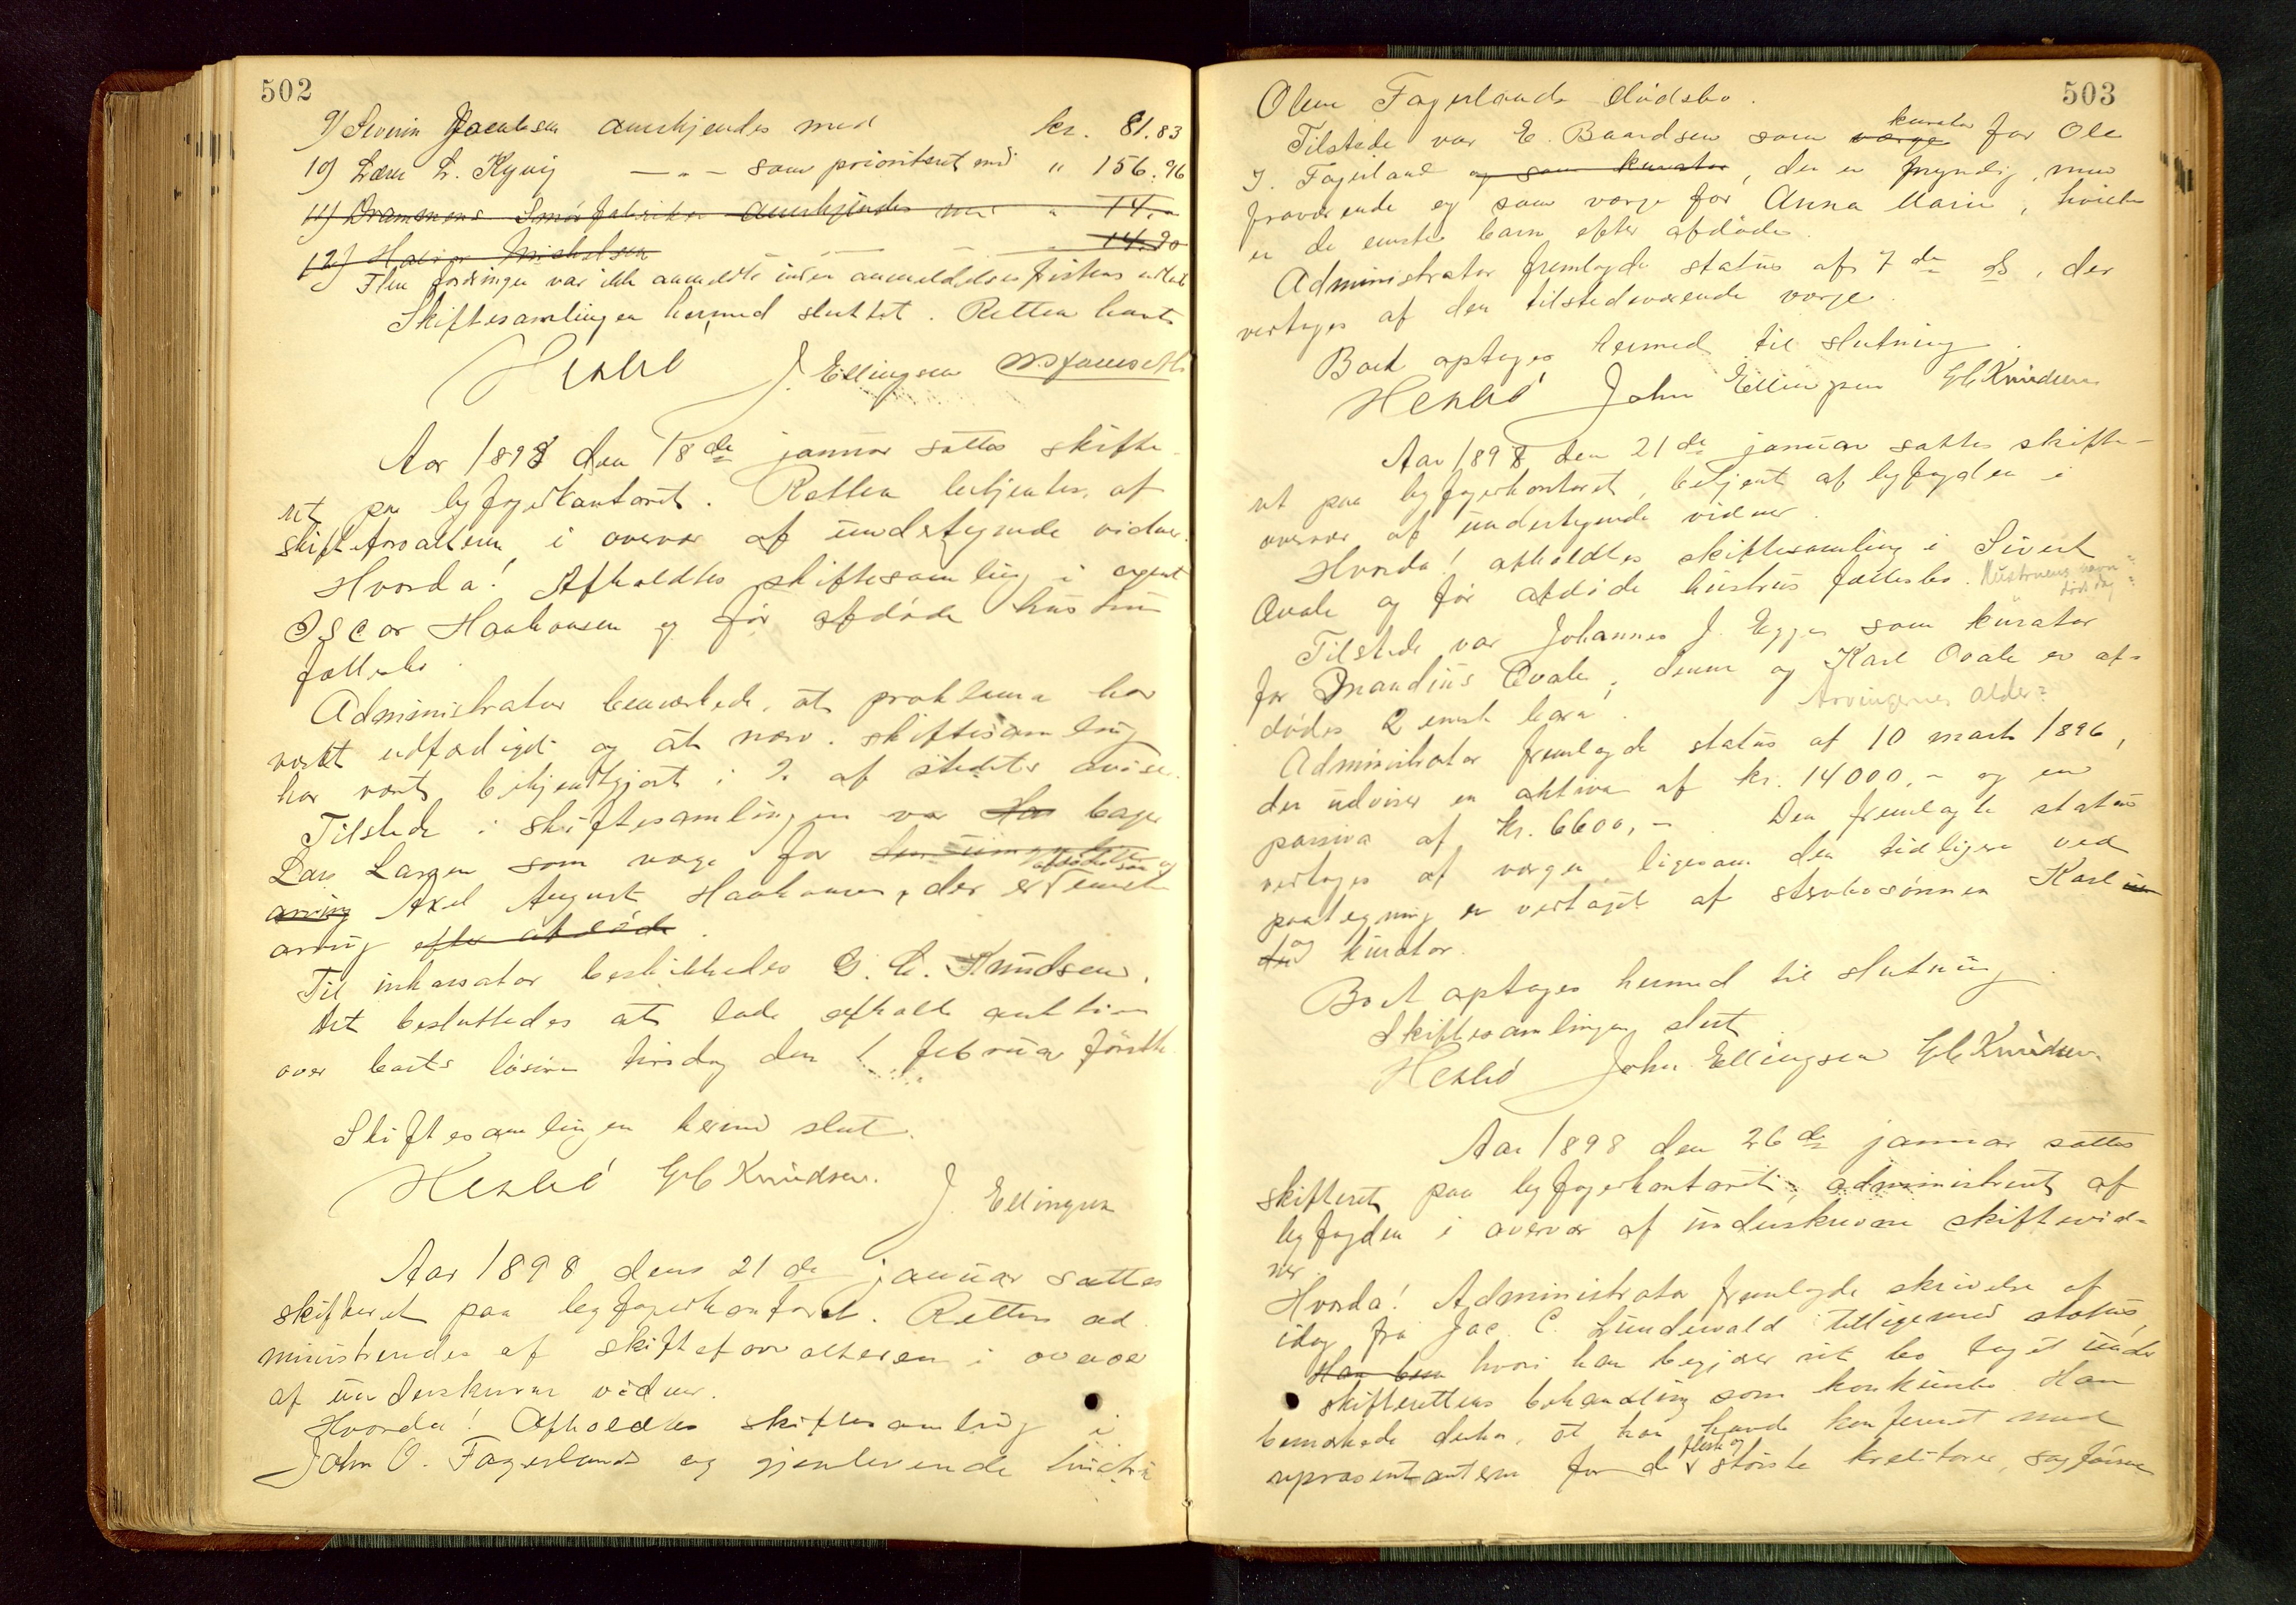 502
9) Severin Jacobsen anerkjendes med kr. 81.83
10) Lars L. Kyvig — " — som prioriteret med " 156.96
11) Drammens Smørfabriker anerkjendes med " 14.-
12) Michelsen — — — " 14.20
Flere fordringer var ikke anmeldte inden anmeldelsesfristens udløb
Skiftesamlingen hermed sluttet. Retten hævet
J. Ellingsen
Aar 1898 den 18de januar sattes skifte-
ret paa byfogedkontoret. Retten betjentes af
skifteforvalteren i overvær af undertegnede vidner.
Hvorda! Afholdtes skiftesamling i agent
Oscar Haakonsen og før afdøde hustrus
fællesbo.
Administrator bemærkede, at proklama har
været udfærdiget og at nærv. skiftesamling
har været bekjendtgjort i 2 af stedets aviser.
Tilstede i skiftesamlingen var Har bager
Lars Larsen som værge for den umyndige
afdødes søn og
arving Axel August Haakonsen, der er eneste
arving efter afdøde.
Til inkassator beskikkedes G. C. Knudsen.
Det besluttedes at lade afholde auktion
over boets løsøre tirsdag den 1 februar førstk.
Skiftesamlingen hermed slut.
G C Knudsen.
J. Ellingsen
Aar 1898 den 21de januar sattes
skifteret paa byfogedkontoret. Retten ad
ministreredes af skifteforvalteren i overvær
af underskrevne vidner.
Hvorda! Afholdtes skiftesamling i
John O. Fagerlands og gjenlevende hustru
503
Olene Fagerlands dødsbo.
kurator
Tilstede var E. Baardsen som værge for Ole
J. Fagerland og som kurator, der er myndig, men
fraværende og som værge for Anna Marie, hvilke
er de eneste barn efter afdøde.
Administrator fremlagde status af 7de ds, der
vertages af den tilstedeværende værge.
Boet optages hermed til slutning.
John Ellingsen G C Knudsen
Aar 1898 den 21de januar sattes skifte-
ret paa byfogedkontoret, betjent af byfogden i
overvær af undertegnede vidner.
Hvorda! afholdtes skiftesamling i Sivert
Qvale og før afdøde hustrus fællesbo. Hustruens navn =
dødsdag =
Tilstede var Johannes J. Egges som kurator
for Qvale; denne og Karl Qvale er af-
dødes 2 eneste barn. Arvingernes alder =
Administrator fremlagde status af 10 marts 1896,
der udviser en aktiva af kr. 14000,- og en
passiva af kr. 6600,-. Den fremlagte status
vertages af værgen, ligesom den tidligere ved
paategning er vertaget af stervbosønnen Karl
og
kurator.
Boet optages hermed til slutning.
Skiftesamlingen slut.
John Ellingsen G C Knudsen.
Aar 1898 den 26de januar sattes
skifteret paa byfogedkontoret, administreret af
byfogden i overvær af underskrevne skiftevid-
ner.
Hvorda! Administrator fremlagde skrivelse af
idag fra Jac. C. Lundevald tilligemed status,
Han bem hvori han begjærer sit bo taget under
skifterettens behandling som konkursbo. Han
bemærkede derhos, at han havde konfereret med
fleste og
repræsentanterne for de største kreditorer, sagfører